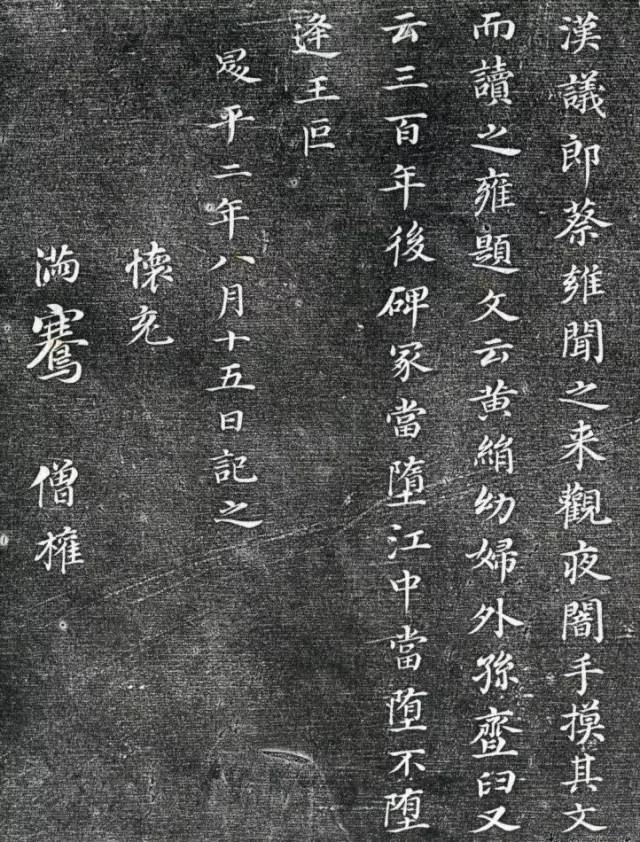 漢議郎蔡雍聞之来觀夜闇手摸其文
而讀之雍題文云黄絹幼婦外孫齏臼又
云三百年後碑冢當墮江中當堕不堕
逢王叵
昇平二年八月十五日記之
懷充
滿騫 僧權